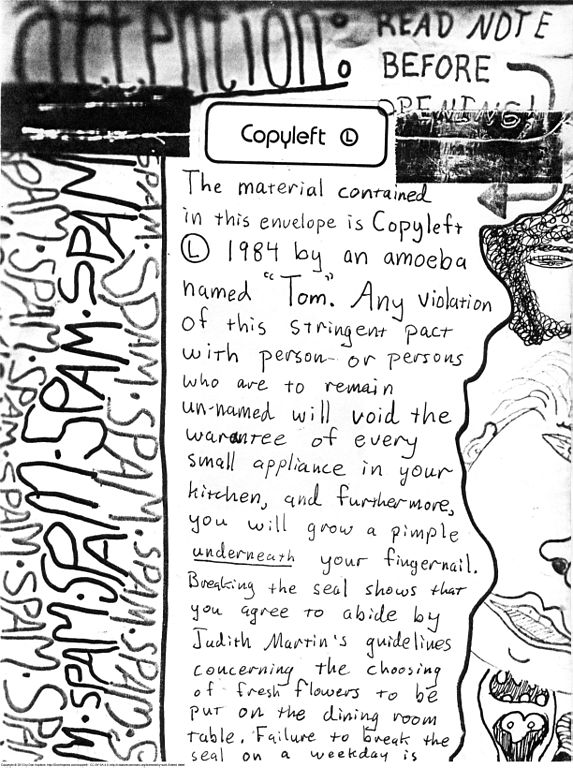 attention:
READ NOTE
BEFORE
OPENING!
Copyleft Ⓛ
The material contained
in this envelope is Copyleft
Ⓛ 1984 by an amoeba
named "Tom." Any violation
of this stringent pact
with person- or persons
who are to remain
un-named will void the
warantee of every
small appliance in your
kitchen, and furthermore,
you will grow a pimple
underneath your fingernail.
Breaking the seal shows that
you agree to abide by
Judith Martin's guidelines
concerning the choosing
of fresh flowers to be
put on the dining room
table. Failure to break the
seal on a weekday is
SPAM·SPAM·SPAM
SPAM·SPAM·SPAM·SPAM
SPAM·SPAM·SPAM·SPAM
SPAM·SPAM·SPAM·SPAM·S